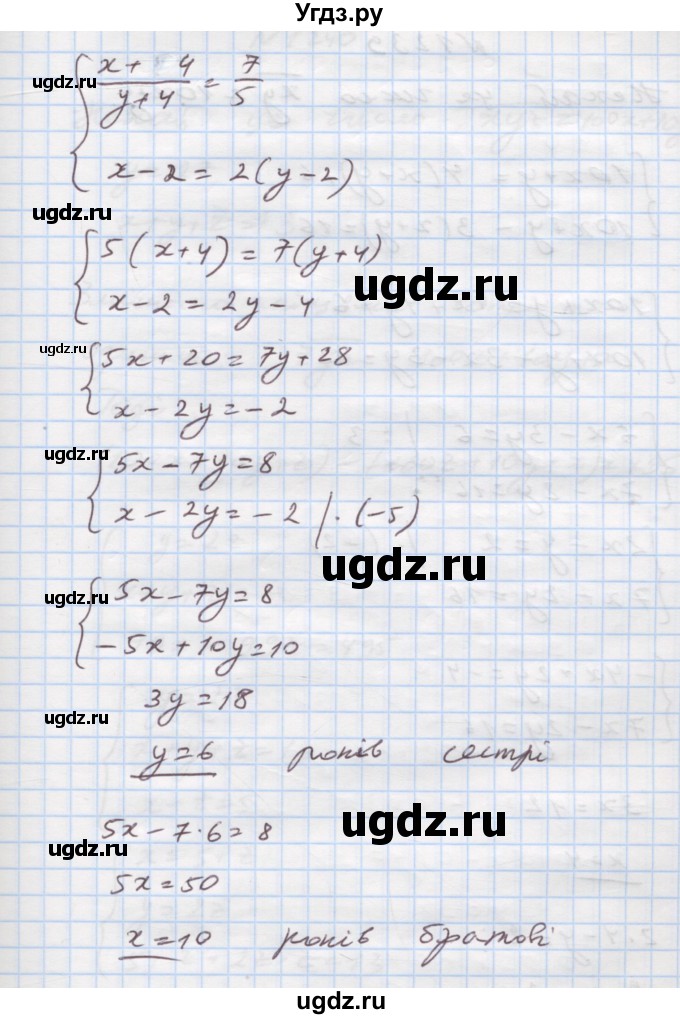 Угдз.ру
x + 4 / y + 4 = 7 / 5
ugdz.ru
x - 2 = 2(y - 2)
ugdz.ru
5(x+4) = 7(y+4)
ugdz.ru
x - 2 = 2y - 4
ugdz.ru
5x + 20 = 7y + 28
x - 2y = -2
ugdz.ru
5x - 7y = 8
x - 2y = -2 / · (-5)
ugdz.ru
ugdz.ru
5x - 7y = 8
-5x + 10y = 10
3y = 18
ugdz.ru
y = 6 років сестрі
ugdz.ru
5x - 7·6 = 8
ugdz.ru
5x = 50
x = 10 років братові
ugdz.ru